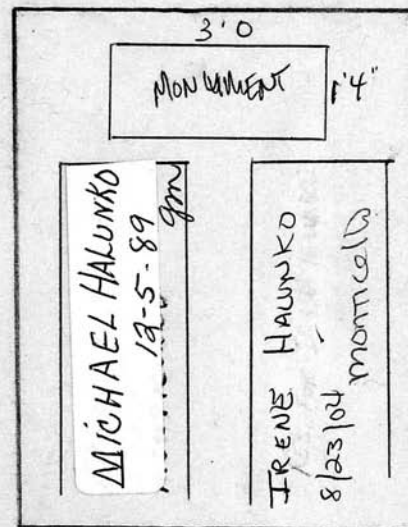 3'0
MONUMENT
1'4"
MICHAEL HALUNKO
12-5-89
gm
IRENE HALUNKO
8/23/04 monticello